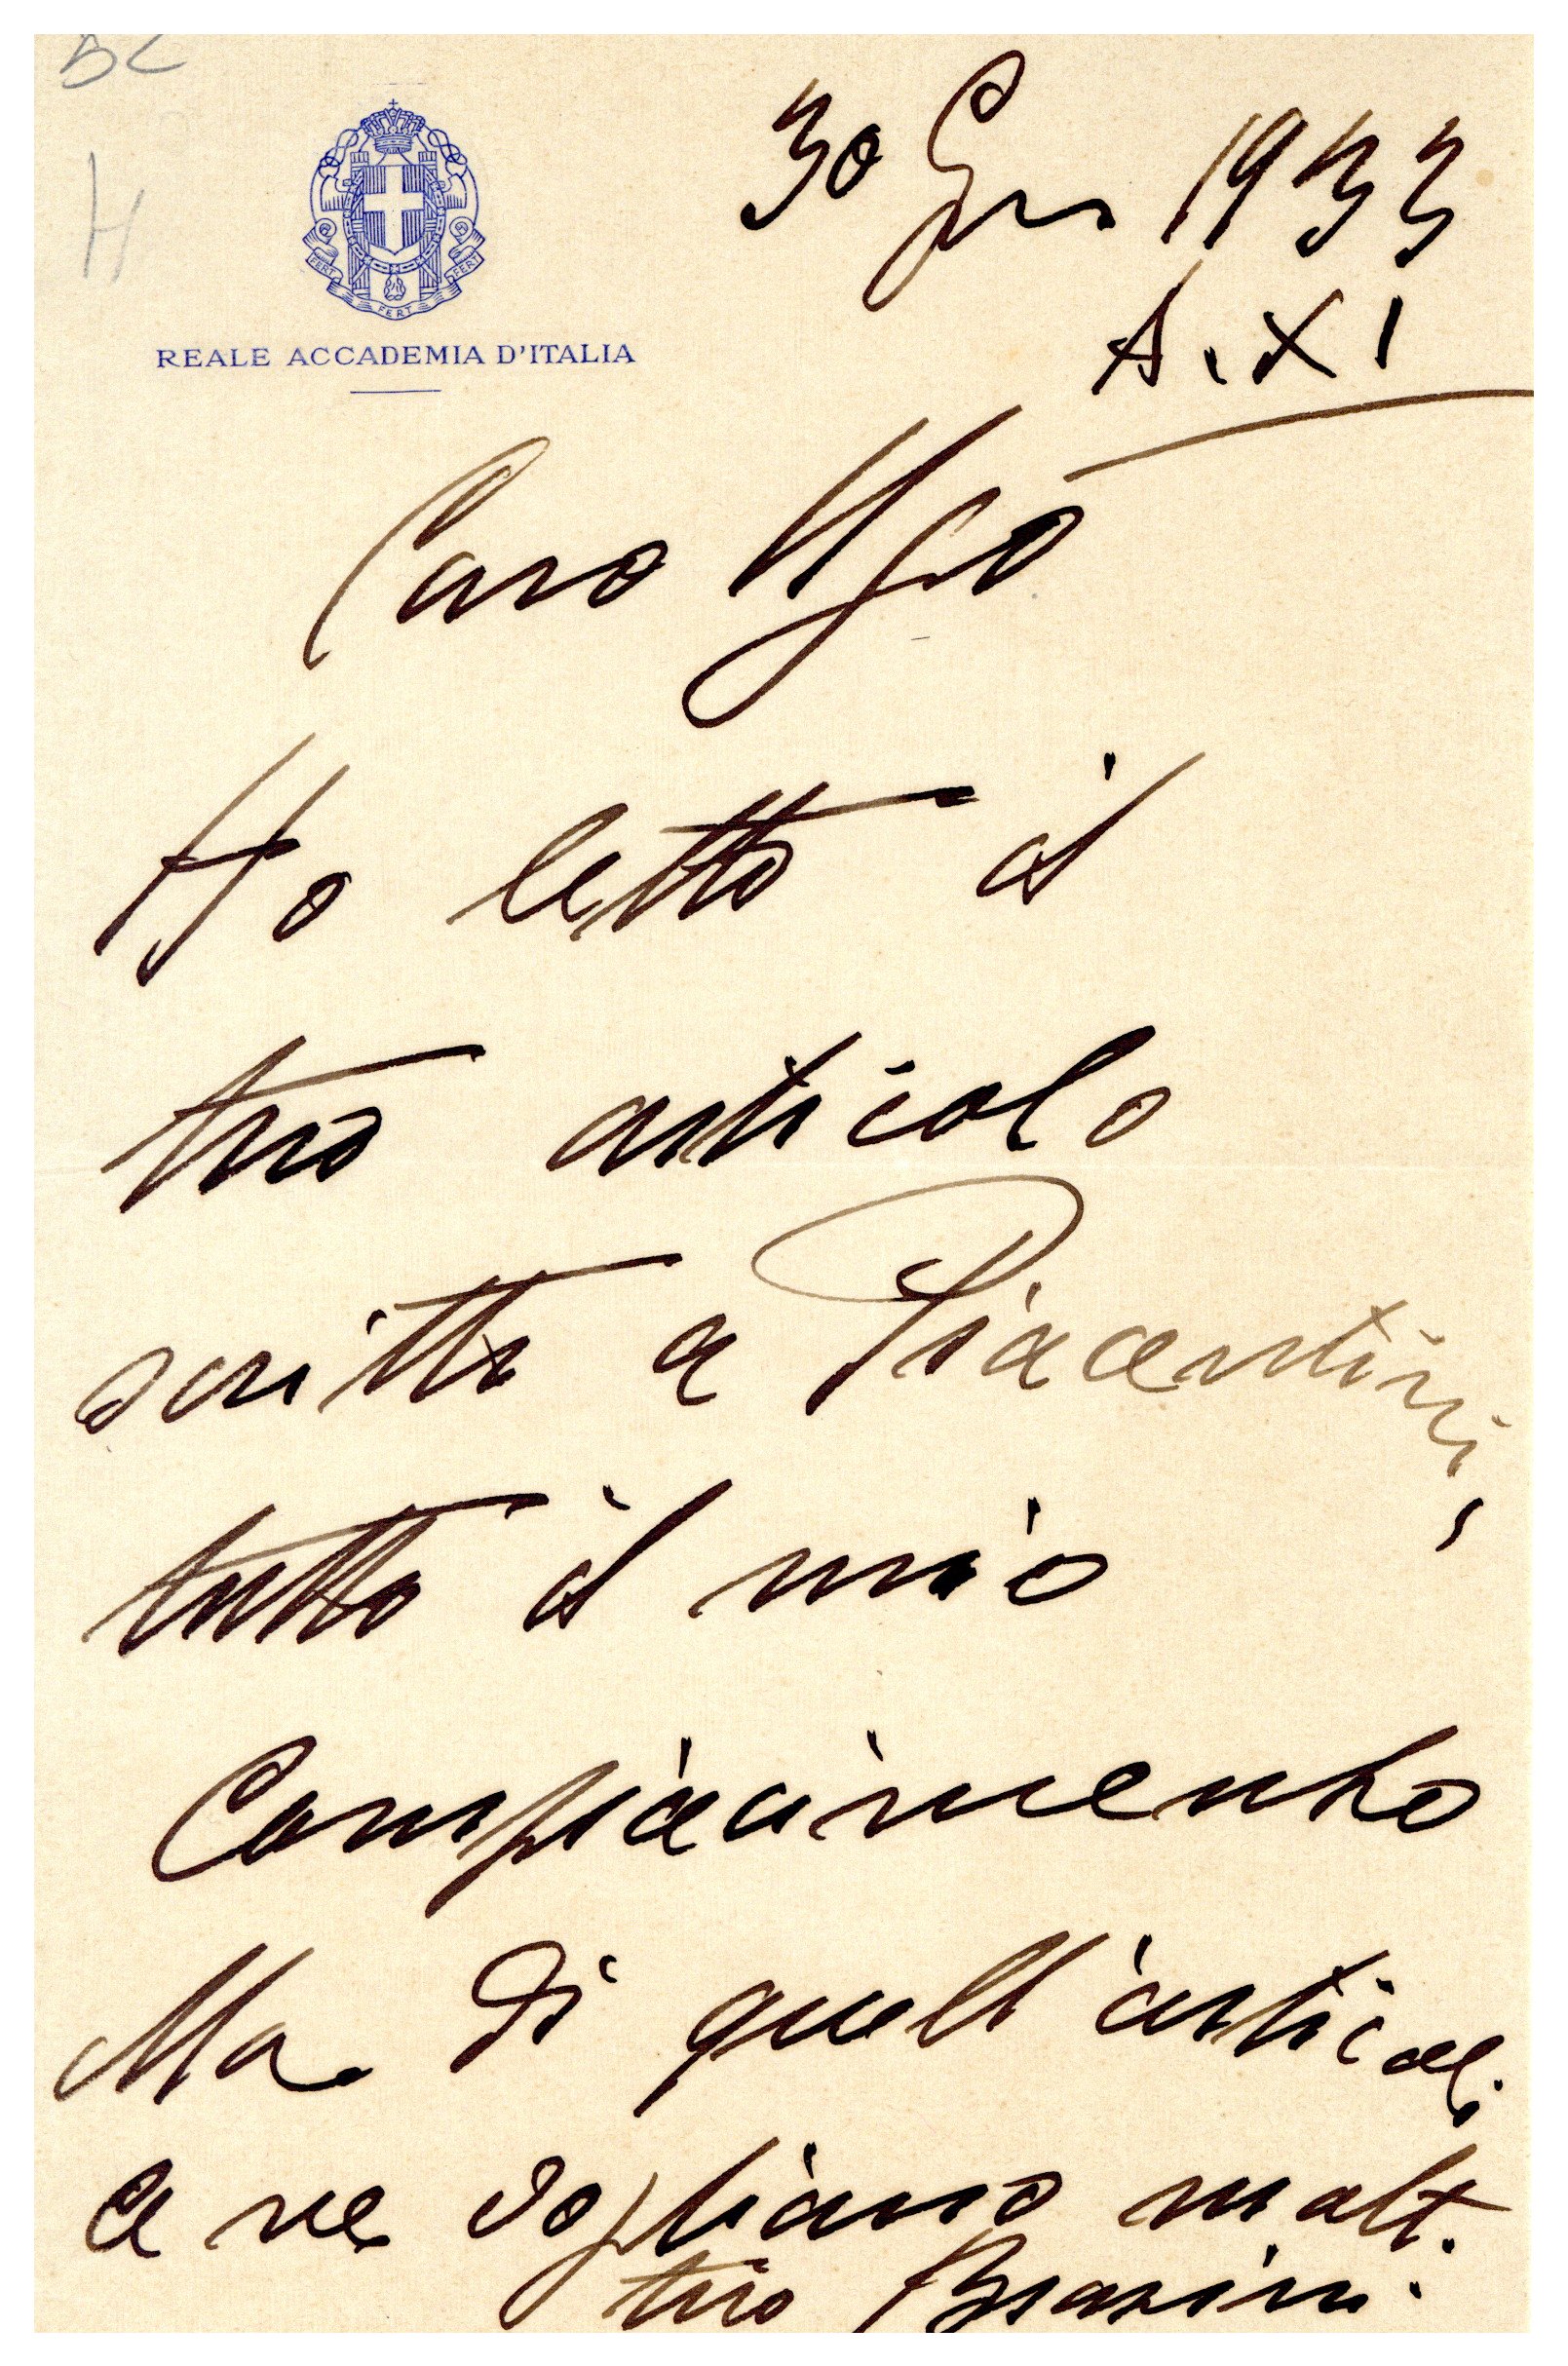 BC
H
FERT FERT FERT
REALE ACCADEMIA D'ITALIA
30 Gen 1933
A. XI
Caro Ugo
Ho letto il
tuo articolo
scritto a Piacentini,
tutto il mio
Compiacimento
Ma di quell'articoli
ce ne vogliano molt.
tuo Brasini.